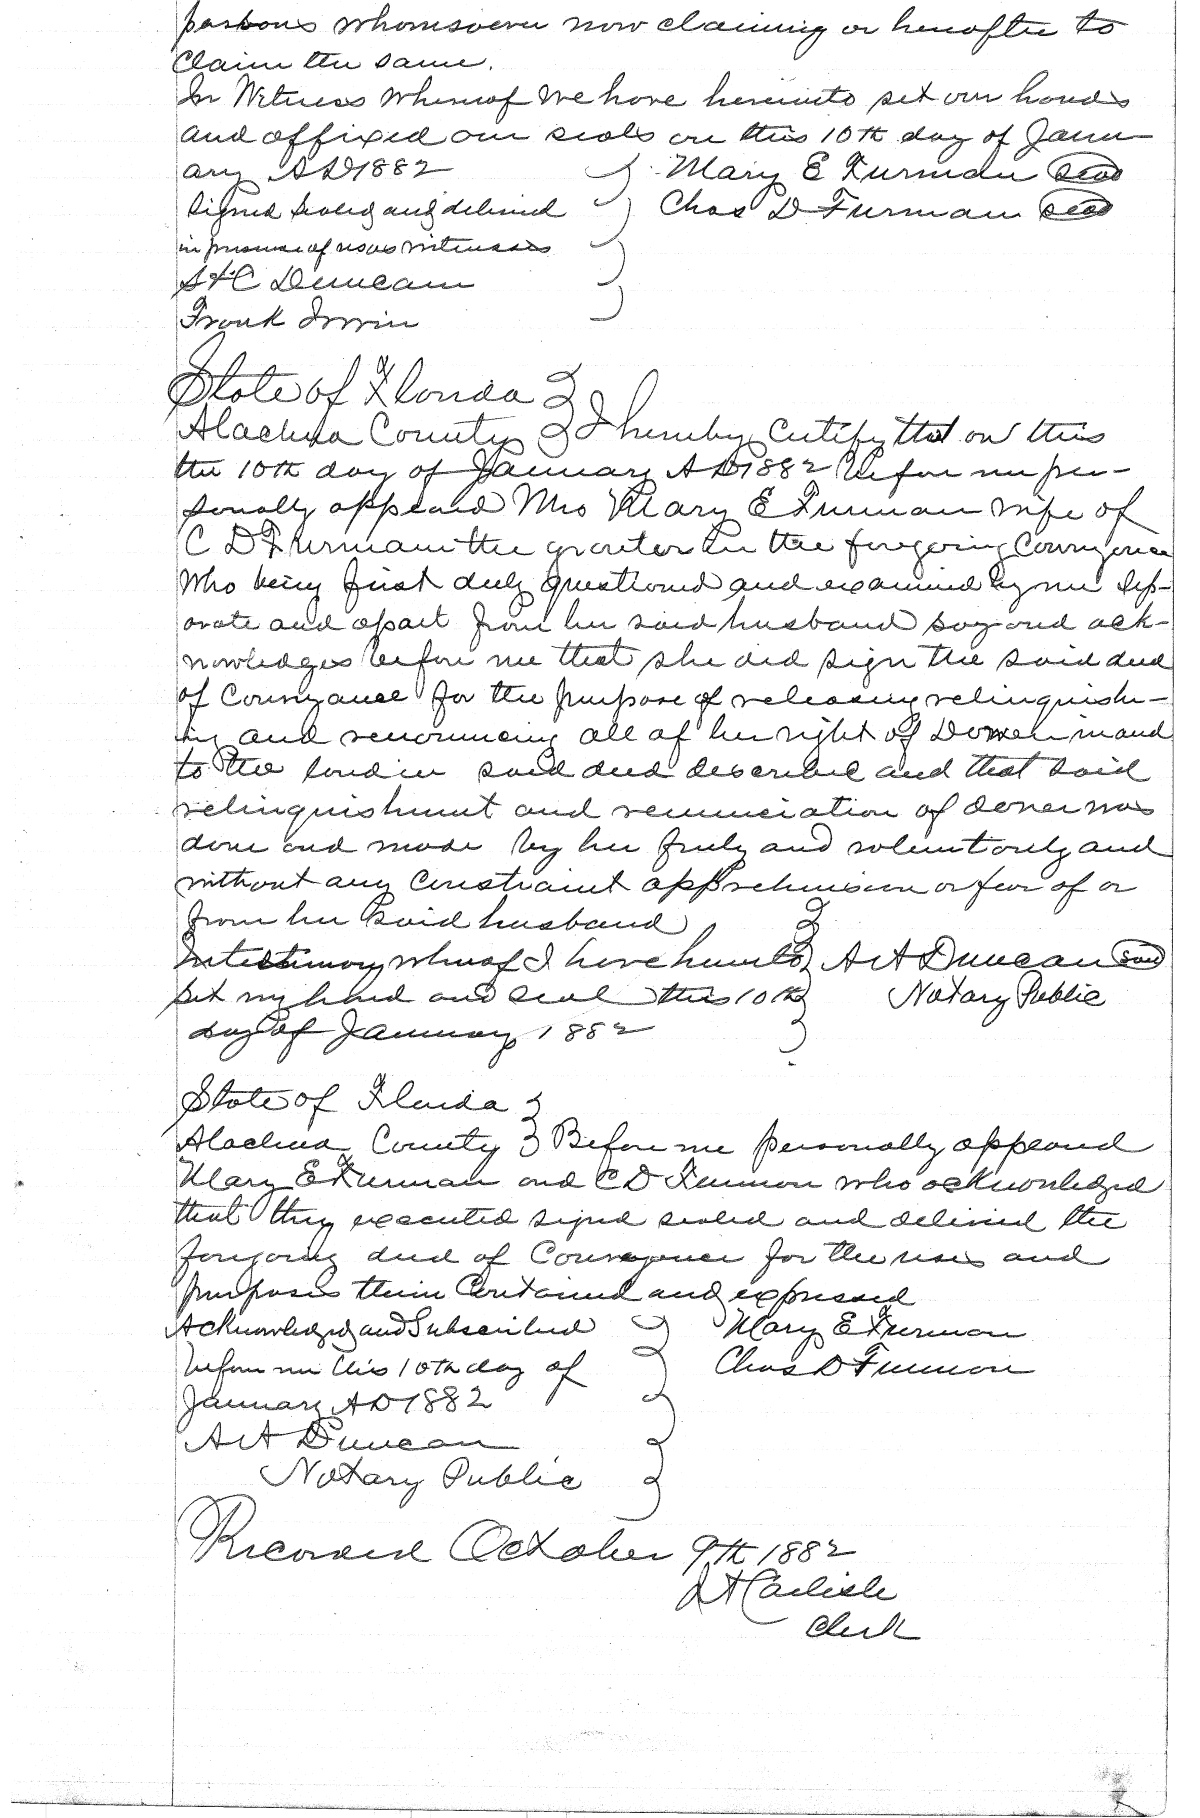 persons whomsoever now claiming or hereafter to
claim the same.
In Witness Whereof We have hereunto set our hands
and affixed our seals on this 10th day of Janu-
ary AD 1882 Mary E Furman seal
Signed sealed and delivered Chas D Furman seal
in presence of us as witnesses
Duncan
Frank Irwin
State of Florida
Alachua County I hereby Certify that on this
the 10th day of January AD 1882 before me per-
sonally appeared Mrs Mary E Furman wife of
C D Furman the grantor in the foregoing Conveyance
Who being first duly questioned and examined by me sep-
arate and apart from her said husband say and ack-
nowledges before me that she did sign the said deed
of Conveyance for the purpose of releasing relinquish-
ing and renouncing all of her right of Dower in and
to the land in said deed described and that said
relinquishment and renunciation of dower was
done and made by her freely and voluntarily and
without any Constraint apprehension or fear of or
from her said husband
In testimony whereof I have hereunto Duncan seal
set my hand and seal this 10th Notary Public
day of January 1882
State of Florida
Alachua County Before me personally appeared
Mary E Furman and C D Furman who acknowledged
that they executed signed sealed and delivered the
foregoing deed of Conveyance for the uses and
purposes therein Contained and expressed
Acknowledged and Subscribed Mary E Furman
before me this 10th day of Chas D Furman
January AD 1882
Duncan
Notary Public
Recorded October 9th 1882
Carlisle
Clerk